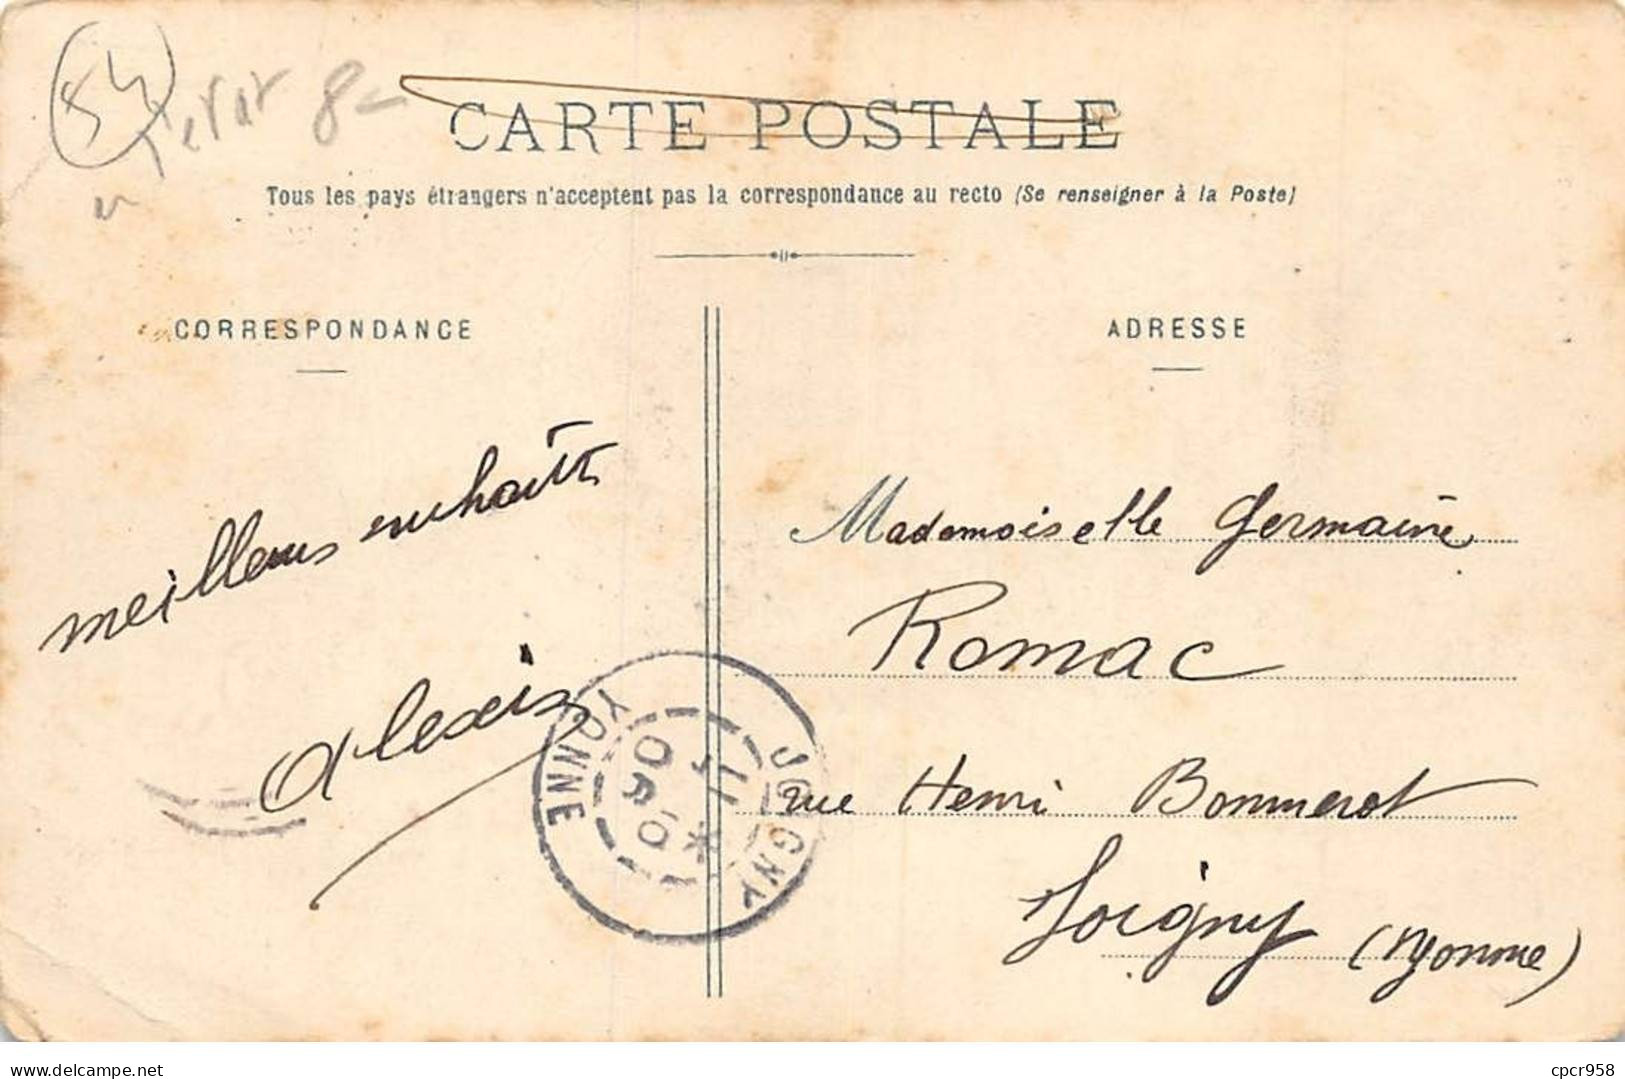 54
8
CARTE POSTALE
Tous les pays étrangers n'acceptent pas la correspondance au recto (Se renseigner à la Poste)
CORRESPONDANCE
ADRESSE
meilleurs souhaits
Alexis
Mademoiselle Germaine
Romac
rue Henri Bonnerot
Joigny (Yonne)
JOIGNY
YONNE
cpcr958